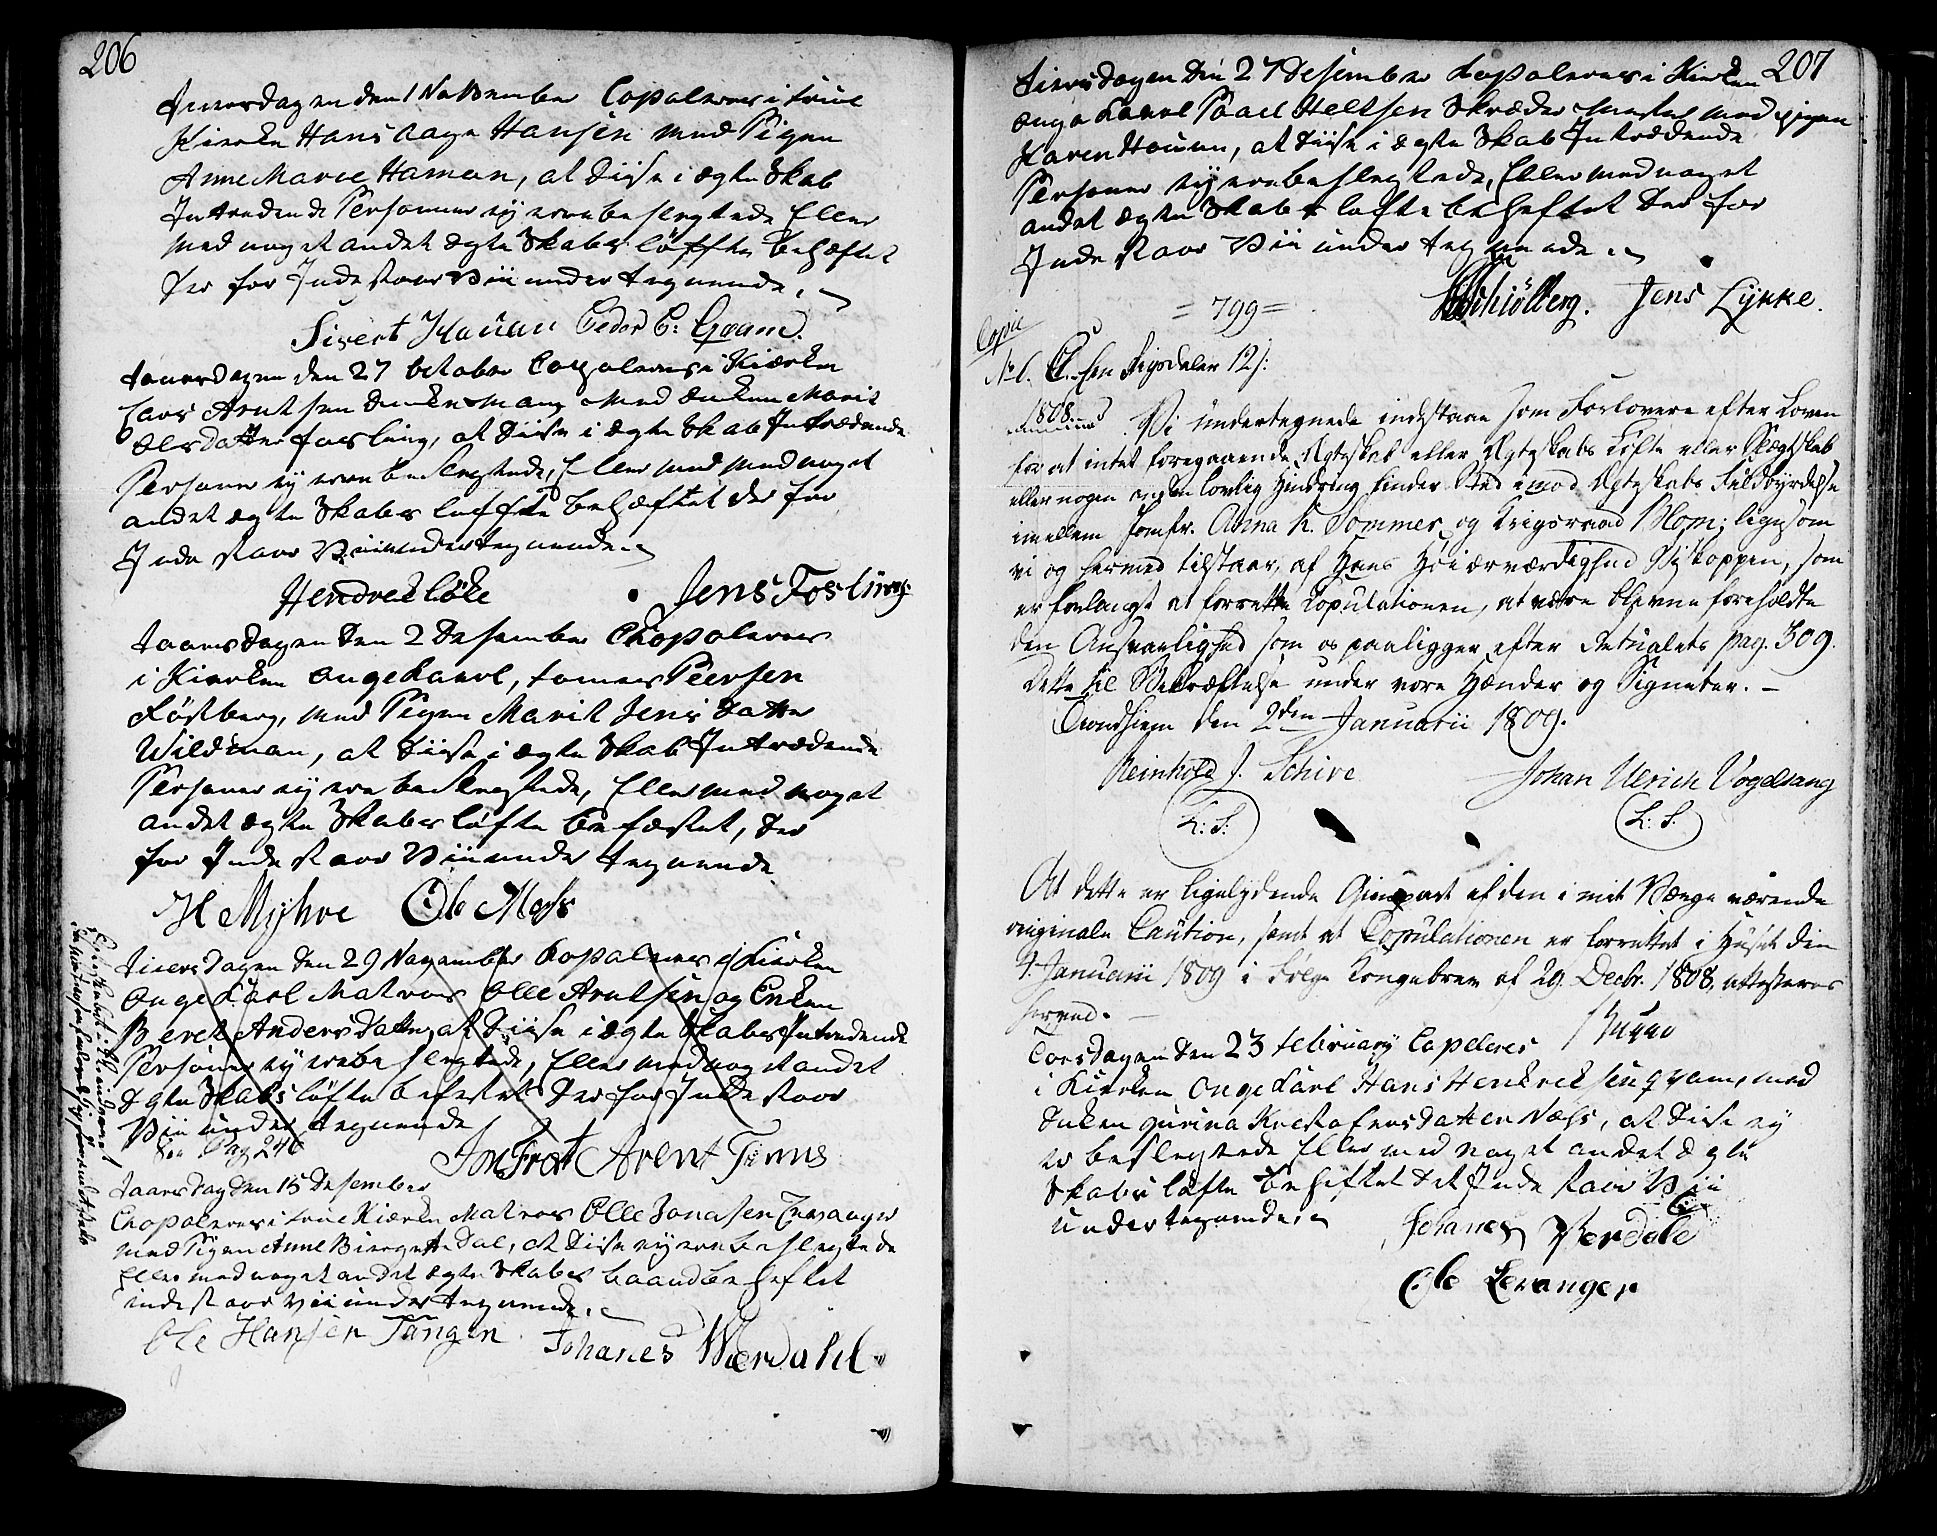 206
den 1 November Copoleres i
Kierke Hans Aage Hansen med Pigen
Anne Marie Haman, at diise i ægte Skab
Intredende Personner ey ere beslegtede Eller
med noget andet ægte Skabs løffte behæftet
der for Inde staar Vii under tegnende
Sivert Hauan Peder C: Qvam
den 27 october Copoleres i Kiærken
Lars med Enken Marit
olsdatter fosling, at diise i ægte Skab Intrædende
Persone ey ere beslegtede, Eller med med noget
andet ægte Skabs løffte behæftet der for
Inde staar Vii under tegnende
Jens Fosling
den 2 Desember Chopoleres
i Kierken ongekaarl, Peersen
med Pigen Marit Jens datter
Wildman, at diise i ægte Skab Intrædende
Persone ey ere beslegtede, Eller med noget
andet ægte Skabs løfte befæstet, der
for Inde staar Vii under tegnende
H Myhre Ole Moss
den 29 November Copoleres i Kierken
Onge Karl Matros Olle Arntsen og Enken
Beret Anders datter, at diise i ægte Skabs Intredende
Persone ey ere beslegtede, Eller med noget andet
ægte Skabs løfte befestet der for Inde staar
Vii under tegnende
See Pag 240
Arent Tinns
den 15 Desember
Chopoleres i Kiærken Matros Olle Jonasen
med Pigen Anne dal, at diise ey ere beslegtede
Eller med noget andet ægte Skabs baand beheftet
inde staar vii under tegnende
Ole Hansen Tangen Johanes Wærdahl
207
den 27 Desember Kopoleres i Kierken
onge Kaarl Paael Skræder Mester med pigen
Karen Hauan, at diise i ægte Skab Intrædende
Personer ey ere beslegtede, Eller med noget
andet ægte Skabs løfte beheftet der for
Inde staar Vii under tegnende
Schiølberg. Jens Lykke.
= 799 =
Copie
No 6. Een Rigsdaler 12 s:
1808. Vi undertegnede indestaae som Forlovere efter Loven
for at intet foregaaende Ægteskab eller Ægteskabs Løfte eller Slægtskab
eller nogen anden lovlig Hindring finder Sted imod Ægteskabs Fuldbyrdelse
imellem Jomfr. Anna K. Sommer og Krigsraad Blom; ligesom
vi og hermed tilstaar, af Hans Høiærværdighed Biskoppen, som
er forlangt at forrette Copulationen, at være blevne foreholdte
den Ansvarlighed som os paaligger efter Ritualets pag. 309.
Dette til Bekræftelse under vore Hænder og Signeter. —
Trondhiem den 2den Januarii 1809.
Reinhold J. Schive Johan Ulrich Vogelsang
L: S: L: S:
At dette er ligelydende Gienpart af den i mit Værge værende
originale Caution, samt at Copulationen er forrettet i Huset den
Januarii 1809 i Følge Kongebrev af 29. Decbr. 1808, attesteres
herved. — Bugge
Torsdagen den 23 februarÿ Copeleres
i Kierken Onge Karl Hans Hendreksen qvam, med
Enken gurina Krestofersdatter Næss, at diise ey
er beslegtede Eller med noget andet ægte
Skabs løfte beheftet det Inde staar Vii
undertegnende
Johanes Verdale
Ole Levanger